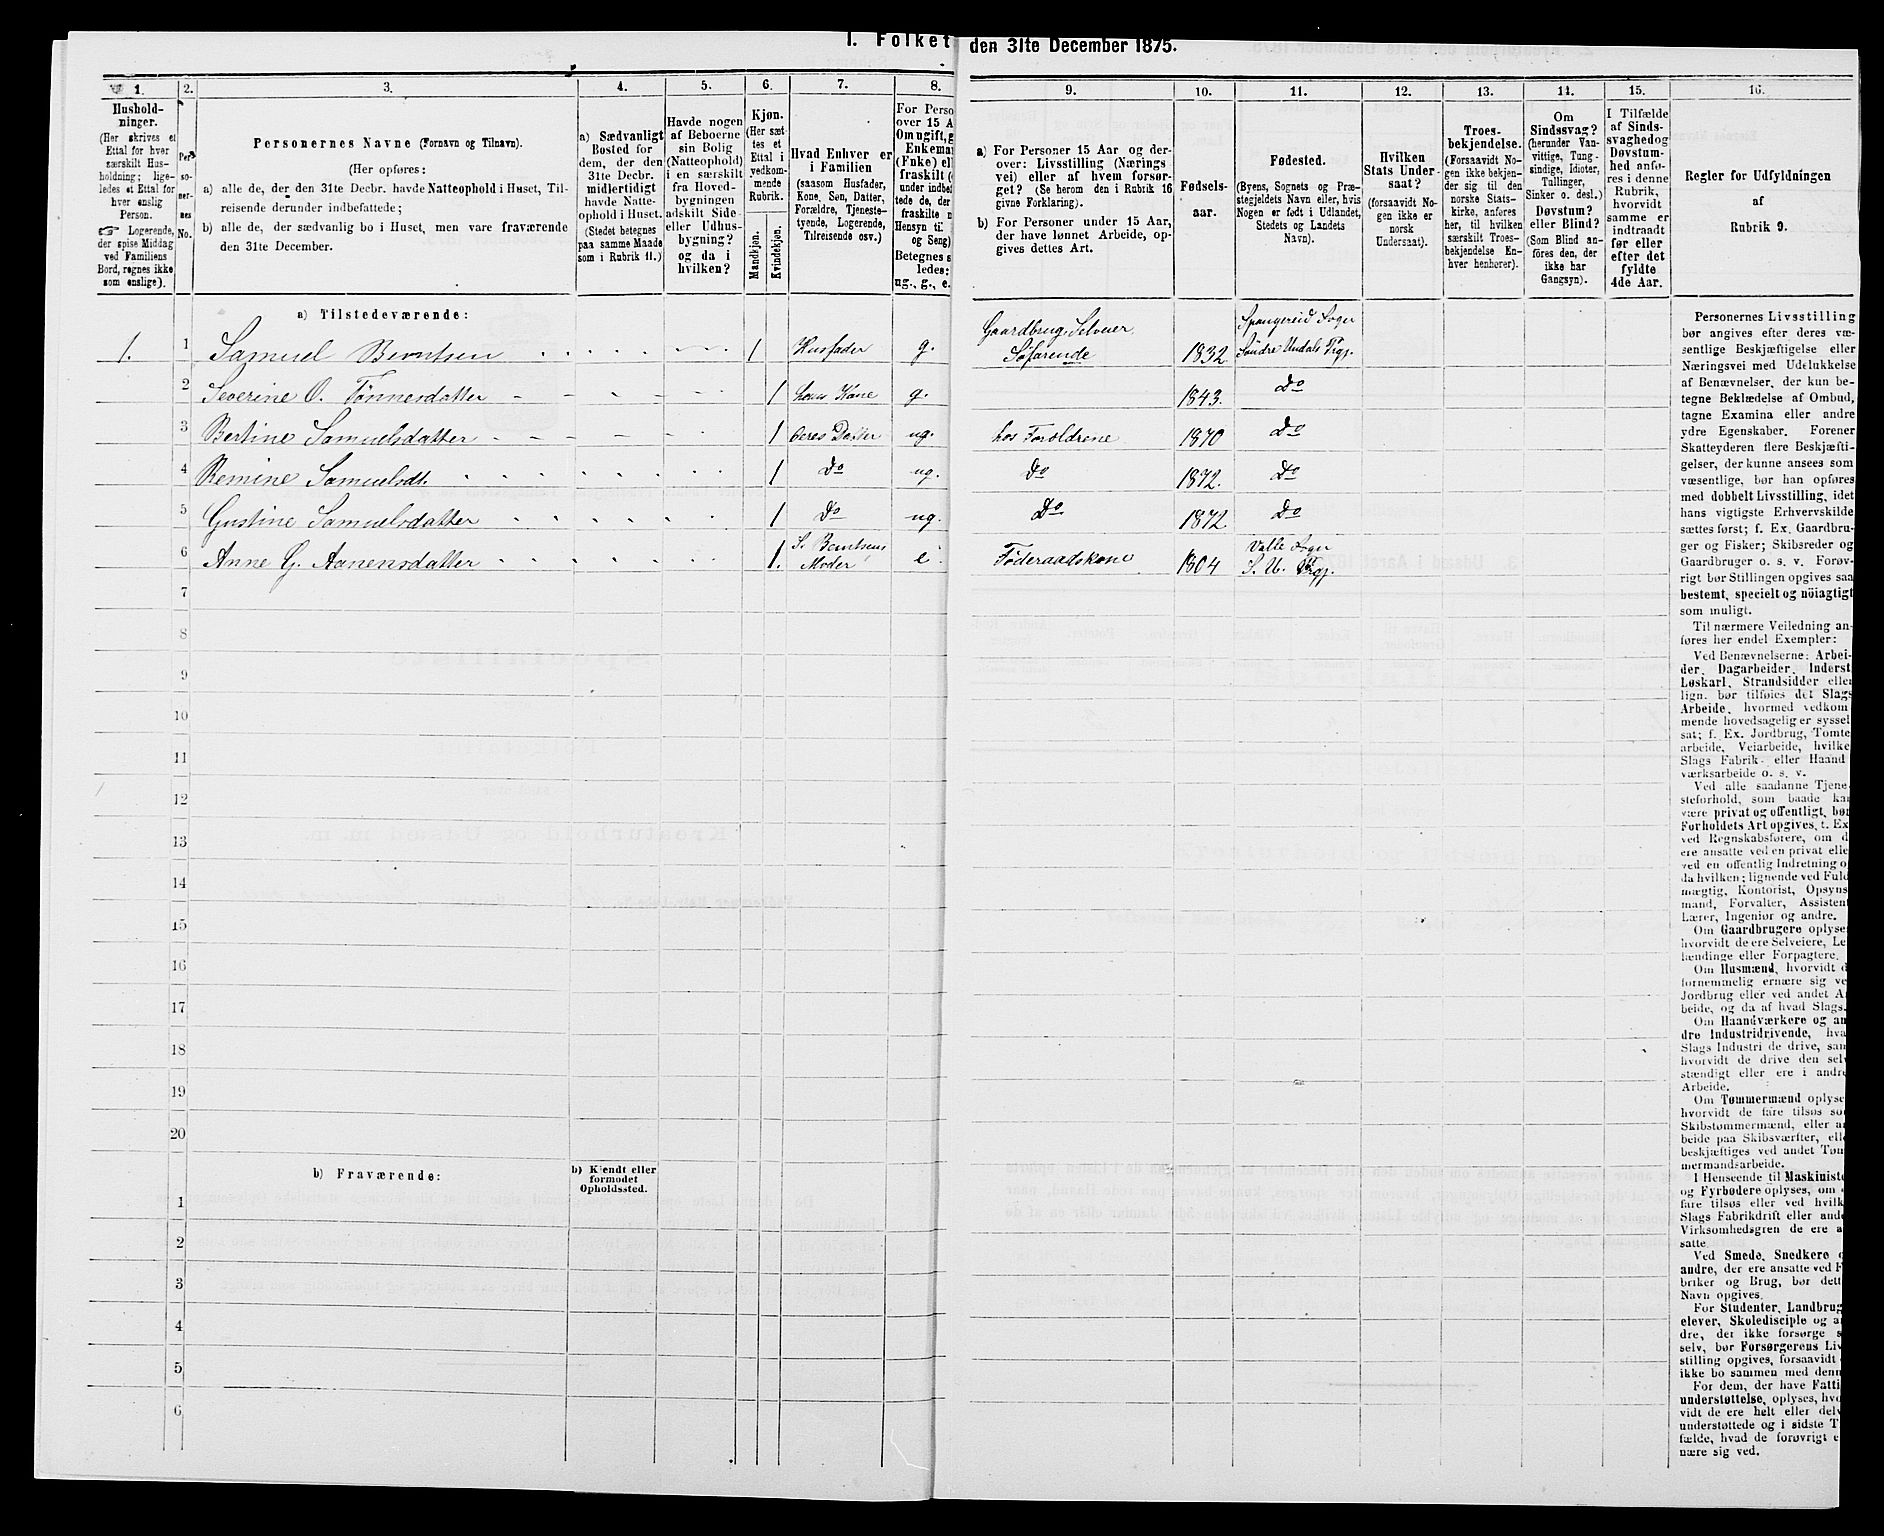 I. Folket
den 31te December 1875.
1. 2. 3. 4. 5. 6. 7. 8. 9. 10. 11. 12. 13. 14. 15. 16.
Hushold-
ninger.
(Her skrives et
Ettal for hver
særskilt Hus-
holdning; lige-
ledes et Ettal for
hver enslig
Person.
☞ Logerende,
der spise Middag
ved Familiens
Bord, regnes ikke
som enslige).
Per-
so-
ner-
nes
No.
Personernes Navne (Fornavn og Tilnavn).
(Her opføres:
a) alle de, der den 31te Decbr. havde Natteophold i Huset, Til-
reisende derunder indbefattede;
b) alle de, der sædvanlig bo i Huset, men vare fraværende
den 31te December.
a) Sædvanligt
Bosted for
dem, der den
31te Decbr.
midlertidigt
havde Natte-
ophold i Huset.
(Stedet betegnes
paa samme Maade
som i Rubrik 11.)
Havde nogen
af Beboerne
sin Bolig
(Natteophold)
i en særskilt
fra Hoved-
bygningen
adskilt Side-
eller Udhus-
bygning?
og da i
hvilken?
Kjøn.
(Her sæt-
tes et
Ettal i
vedkom-
mende
Rubrik.
Mandkjøn.
Kvindekjøn.
Hvad Enhver er
i Familien
(saasom Husfader,
Kone, Søn, Datter,
Forældre, Tjeneste-
tyende, Logerende,
Tilreisende osv.)
For Perso
over 15 A
Om ugift, g
Enkema
(Enke) el
fraskilt (
under indbef
tede de, der
fraskilte n
Hensyn til
og Seng)
Betegnes s
ledes:
ug., g., e.
a) For Personer 15 Aar og der-
over: Livsstilling (Nærings
vei) eller af hvem forsør-
get? (Se herom den i Rubrik 16
givne Forklaring).
b) For Personer under 15 Aar,
der have lønnet Arbeide, op-
gives dettes Art.
Fødsels-
aar.
Fødested.
(Byens, Sognets og Præ-
stegjeldets Navn eller, hvis
Nogen er født i Udlandet,
Stedets og Landets
Navn).
Hvilken
Stats Under-
saat?
(forsaavidt No-
gen ikke er
norsk
Undersaat).
Troes-
bekjendelse.
(Forsaavidt No-
gen ikke bekjen-
der sig til den
norske Stats-
kirke, anføres
her, til hvilken
særskilt Troes-
bekjendelse En-
hver henhører).
Om
Sindssvag?
(herunder Van-
vittige, Tung-
sindige, Idioter,
Tullinger,
Sinker o. desl.)
Døvstum?
eller Blind?
(Som Blind an-
føres den, der
ikke har
Gangsyn).
I Tilfælde
af Sinds-
svaghed og
Døvstum-
hed anfø-
res i denne
Rubrik,
hvorvidt
samme er
indtraadt
før eller
efter det
fyldte
4de Aar.
Regler for Udfyldningen
af
Rubrik 9.
a) Tilstedeværende:
1. 1 Samuel Berntsen 1 Husfader g. Gaardbrug. Selveier Søfarende 1832. Spangereid Sogn Søndre Undals Prgj.
2 Severine O. Tønnesdatter 1 hans Kone g. 1843. Do
3 Bertine Samuelsdatter 1 deres Datter ug. hos Foreldrene 1870 Do
4 Remine Samuelsdt. 1 Do ug. Do 1872. Do
5 Gustine Samuelsdatter 1 Do ug. Do 1872. Do
6 Anne G. Aanensdatter 1. S. Berntsens Moder e. Føderaadskone 1804 Valle Sogn S. U. Prgj.
7
8
9
10
11
12
13
14
15
16
17
18
19
20
b) Fraværende:
b) Kjendt eller
formodet
Opholdssted.
1
2
3
4
5
6
Personernes Livsstilling
bør angives efter deres væ-
sentlige Beskjæftigelse eller
Næringsvei med Udelukkelse
af Benævnelser, der kun be-
tegne Beklædelse af Ombud,
tagne Examina eller andre
ydre Egenskaber. Forener
Skatteyderen flere Beskjæfti-
gelser, der kunne ansees som
væsentlige, bør han opføres
med dobbelt Livsstilling, idet
hans vigtigste Erhvervskilde
sættes først; f. Ex. Gaardbru-
ger og Fisker; Skibsreder og
Gaardbruger o. s. v. Forøv-
rigt bør Stillingen opgives saa
bestemt, specielt og nöiagtigt
som muligt.
Til nærmere Veiledning an-
føres her endel Exempler:
Ved Benævnelserne: Arbei-
der, Dagarbeider, Inderst
Løskarl, Strandsidder eller
lign. bør tilføies det Slags
Arbeide, hvormed vedkom
mende hovedsagelig er syssel
sat; f. Ex. Jordbrug, Tomte
arbeide, Veiarbeide, hvilke
Slags Fabrik- eller Haand
værksarbeide o. s. v.
Ved alle saadanne Tjene
steforhold, som baade kan
være privat og offentligt, bør
Forholdets Art opgives, t. Ex
ved Regnskabsførere, om d
ere ansatte ved en privat elle
ved en offentlig Indretning o
da hvilken; lignende ved Fuld
mægtig, Kontorist, Opsyns
mand, Forvalter, Assistent
Lærer, Ingeniør og andre.
Om Gaardbrugere oplyse
hvorvidt de ere Selveiere, Le
lændinge eller Forpagtere.
Om Husmænd, hvorvidt d
fornemmelig ernære sig ve
Jordbrug eller ved andet A
beide, og da af hvad Slags.
Om Haandværkere og an
dre Industridrivende, hva
Slags Industri de drive, sam
hvorvidt de drive den selv
stændigt eller ere i andre
Arbeide.
Om Tømmermænd oplyse
hvorvidt de fare tilsøs so
Skibstømmermænd, eller ar
beide paa Skibsværfter, elle
beskjæftiges ved andet Tøm
mermandsarbeide.
I Henseende til Maskiniste
og Fyrbødere oplyses, om d
fare tilsøs eller ved hvilk
Slags Fabrikdrift eller ande
Virksomhedsgren de ere a
satte
Ved Smede, Snedkere o
andre, der ere ansatte ved F
briker og Brug, bør dett
Navn opgives.
For Studenter, Landbrug
elever, Skoledisciple og a
dre, der ikke forsørge s
selv, bør Forsørgerens Liv
stilling opgives, forsaavidt
ikke bo sammen med denn
For dem, der have Fatti
understøttelse, oplyses, hvo
vidt de ere helt eller delv
understøttede og i sidste T
fælde, hvad de forøvrigt e
nære sig ved.